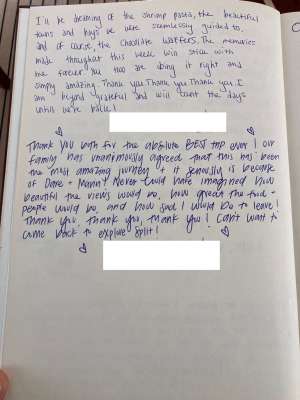 I'll be dreaming of the shrimp pasta, the beautiful
towns and bays we were seamlessly guided to,
and of course, the chocolate waffers. The memories
made throughout this week will stick with
me forever. You two are doing it right and
simply amazing. Thank you Thank you Thank you I
am beyond grateful and will count the days
until we're back!
Thank you both for the absolute BEST trip ever! Our
family has unanimously agreed that this has been
the most amazing journey + it seriously is because
of Dare + Marina! Never could have imagined how
beautiful the views would be, how great the food +
people would be, and how sad I would be to leave!
Thank you, thank you, thank you! Can't wait to
come back to explore Split!